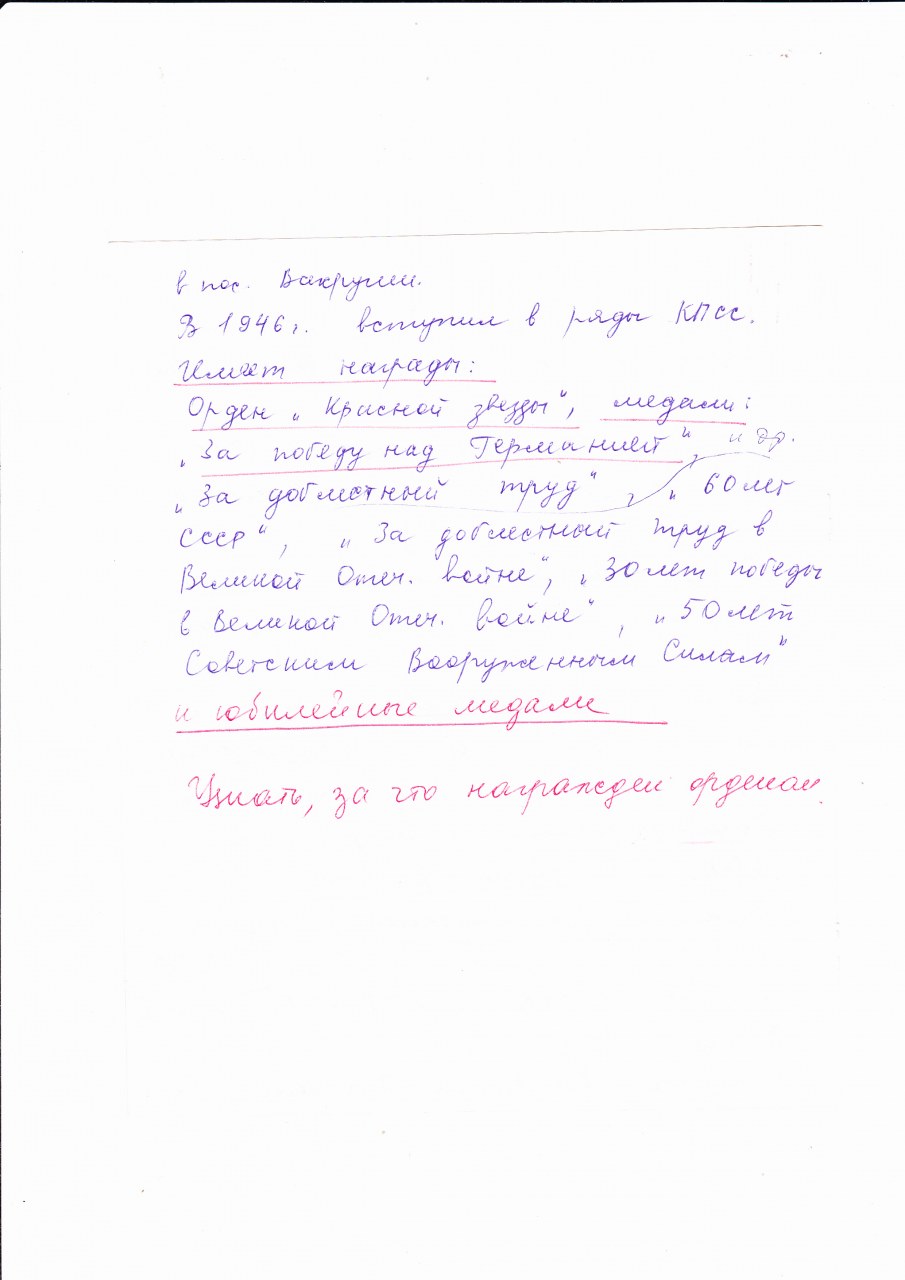 в пос. Вахруши.
В 1946 г. вступил в ряды КПСС.
Имеет награды:
Орден „Красной звезды", медали:
„За победу над Германией", и др.
„За доблестный труд", „60 лет
СССР", „За доблестный труд в
Великой Отеч. войне", „30 лет победы
в Великой Отеч. войне", „50 лет
Советским Вооруженным Силам"
и юбилейные медали
Узнать, за что награжден орденом.